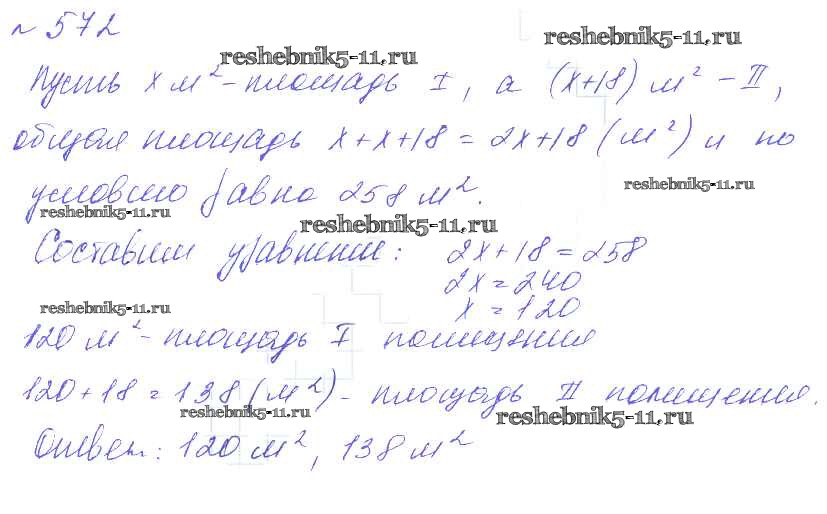 № 572
reshebnik5-11.ru
reshebnik5-11.ru
Пусть x м² - площадь I, а (x+18) м² - II,
общая площадь x+x+18 = 2x+18 (м²) и по
reshebnik5-11.ru
условию равна 258 м².
reshebnik5-11.ru
reshebnik5-11.ru
Составим уравнение: 2x+18=258
2x=240
reshebnik5-11.ru
x=120
120 м² - площадь I помещения
120+18=138 (м²) - площадь II помещения.
reshebnik5-11.ru
reshebnik5-11.ru
Ответ: 120 м², 138 м²